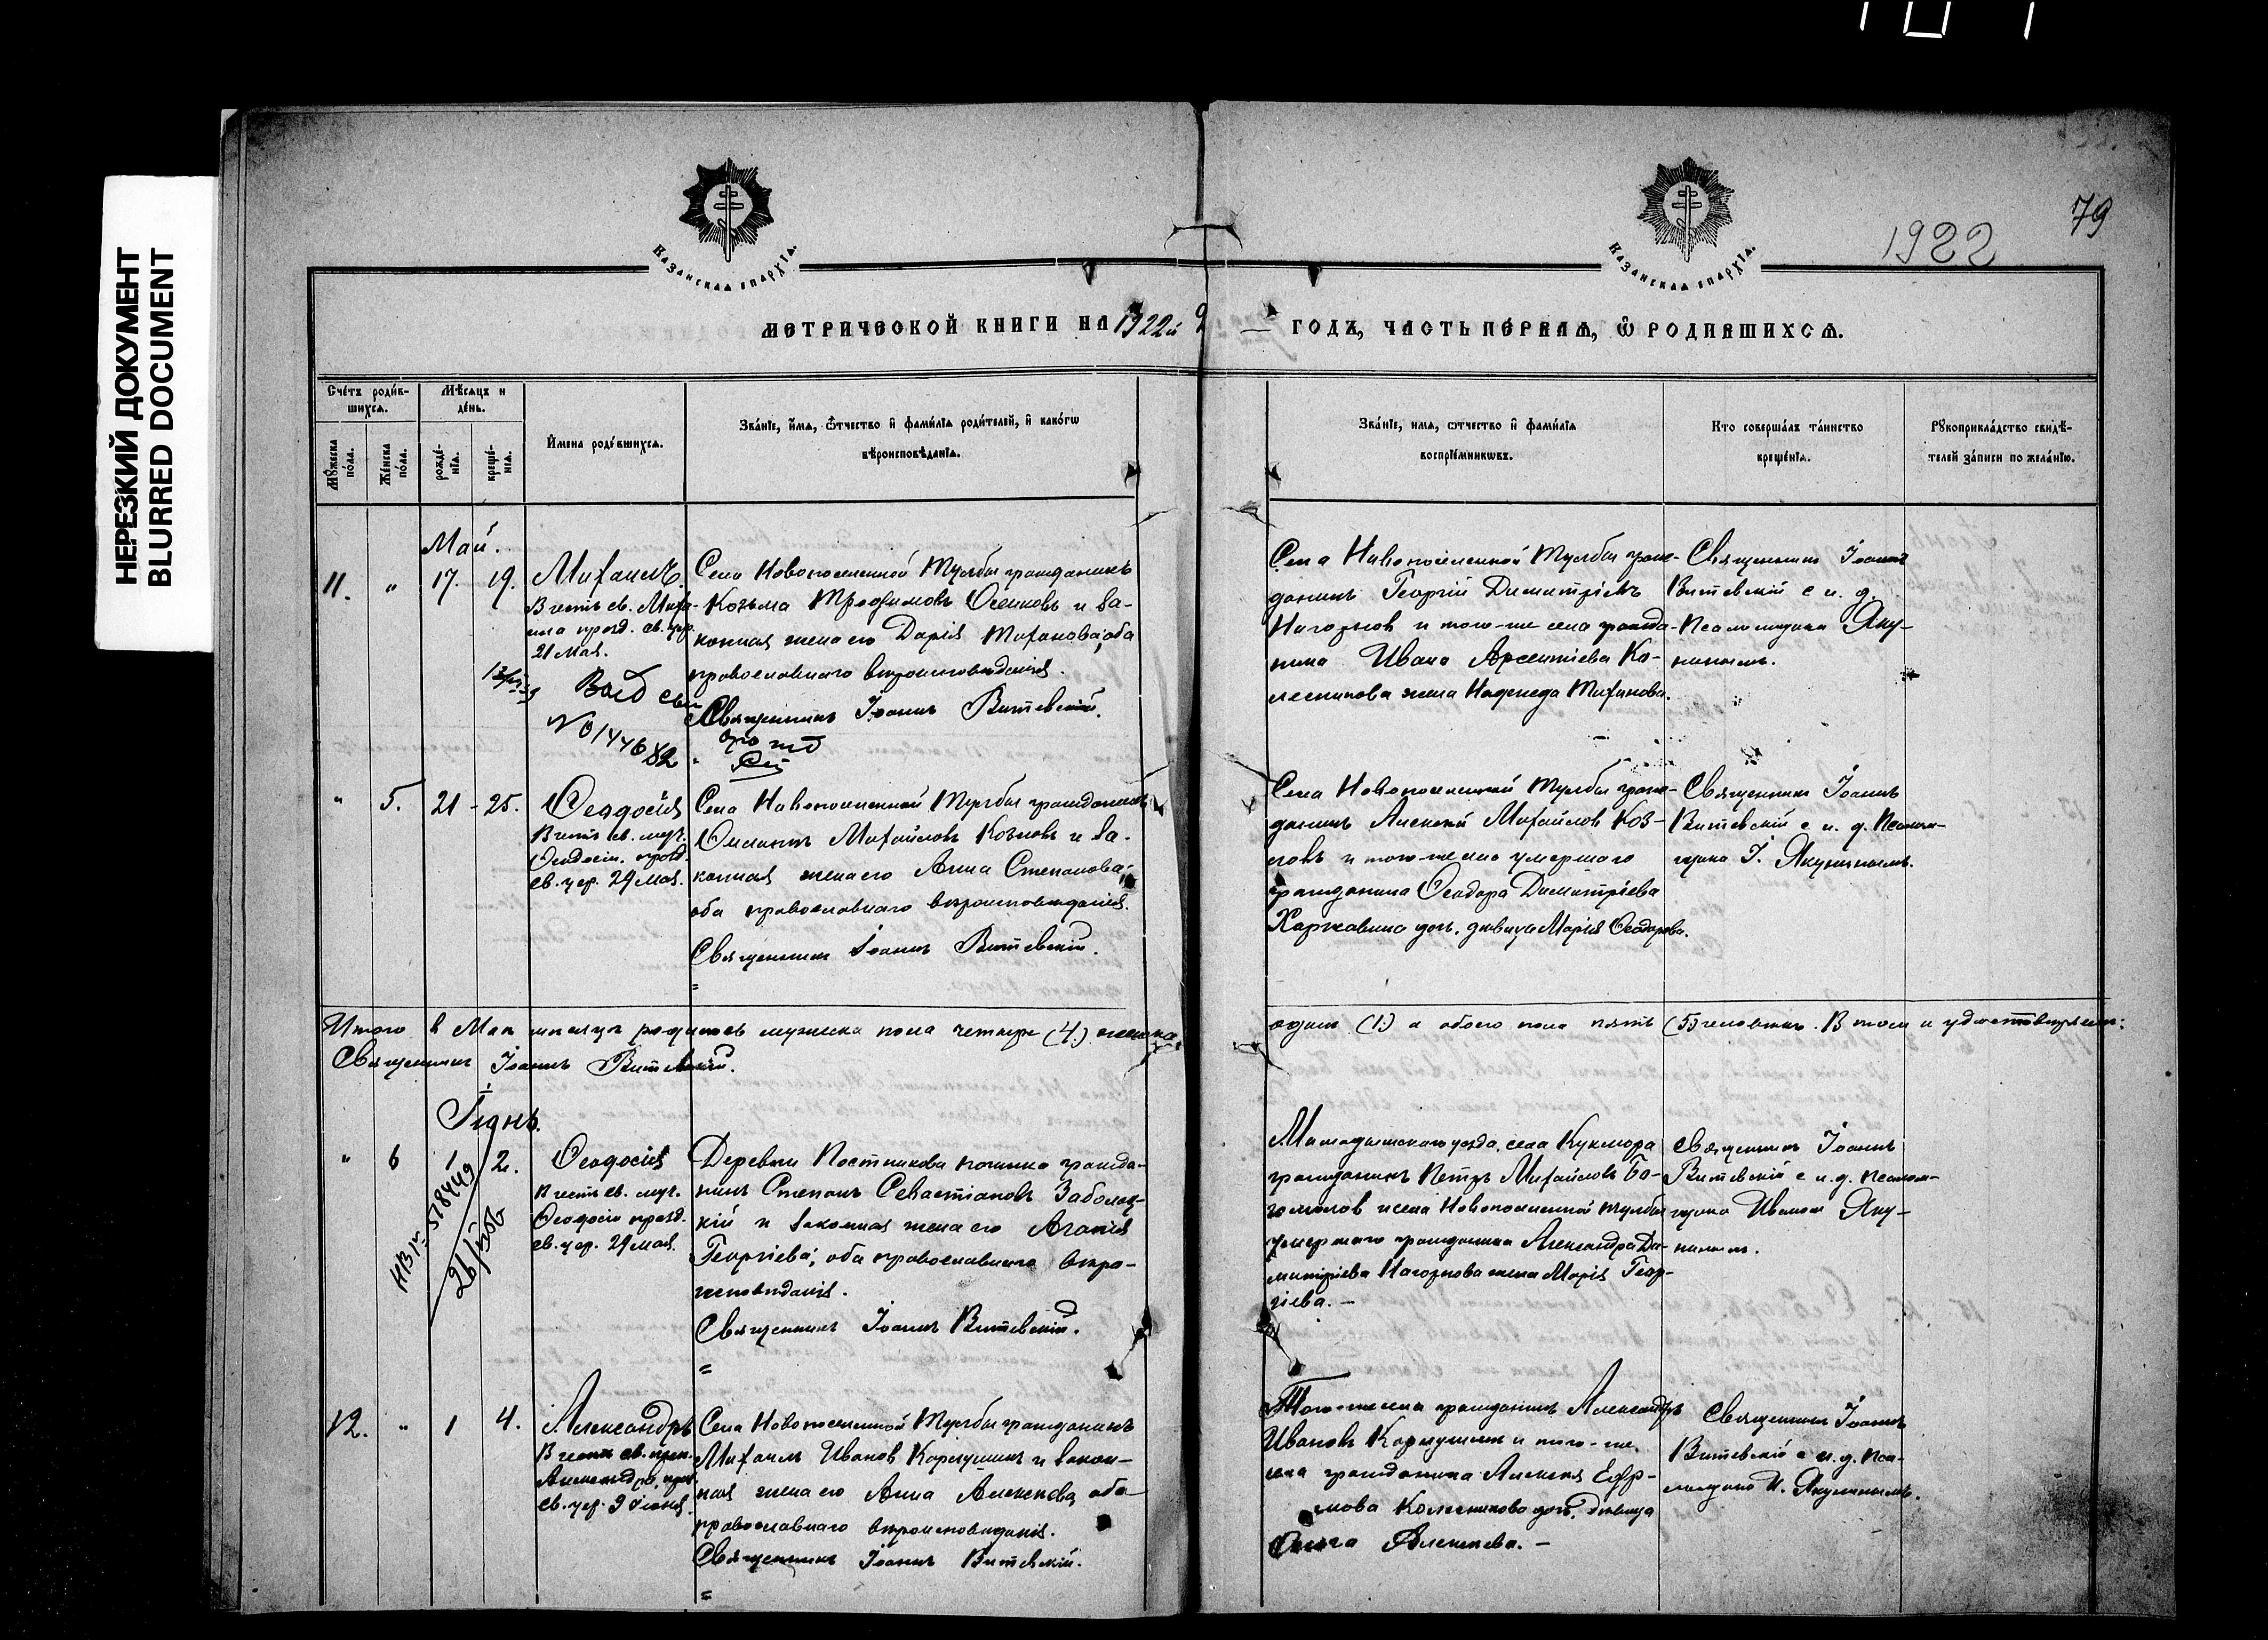 НЕРЕЗКИЙ ДОКУМЕНТ
BLURRED DOCUMENT
79
1922
Казанская епархїѧ.
Казанская епархїѧ.
МЕТРИЧЕСКОЙ КНИГИ НА 1922й ГОДЪ, ЧАСТЬ ПЕРВАЯ, Ѽ РОДИВШИХСѦ.
Счётъ роди́в-
шихсѧ.
Мꙋжеска по́ла.
Же́нска по́ла.
Мѣсѧцъ и
де́нь.
рожде́-
нїѧ.
креще́-
нїѧ.
И҆мена роди́вшихсѧ.
Зва́нїе, и҆мѧ, ѻ҆́тчество и҆ фами́лїѧ роди́телей, и҆ како́гѡ
вѣроисповѣданїѧ.
Зва́нїе, имѧ, ѻтчество и҆ фами́лїѧ
воспрїе́мникѡвъ.
Кто соверша́лъ та́инство
креще́нїѧ.
Рꙋкоприкла́дство свидѣ́-
телей за́писи по жела́нїю.
Май.
11. " 17. 19.
Михаилъ.
В честь св. Миха-
ила празд. св. цер.
21 Мая.
Села Новопоселенной Тулбы гражданинъ
Козьма Трофимовъ Осенковъ и за-
конная жена его Дарія Тиханова; оба
православнаго вѣроисповѣданія.
Священникъ Іоаннъ Витевскій.
№ 0144682
Села Новопоселенной Тулбы граж-
данинъ Георгій Димитріевъ
Нагорновъ и того-же села гражда-
нина Ивана Арсентіева Ко-
лесникова жена Надежда Тиханова.
Священникъ Іоаннъ
Витевскій с и. д.
Псаломщика Яку-
нинымъ.
" 5. 21 - 25.
Ѳеодосія
В честь св. муч.
Ѳеодосіи празд.
св. цер. 29 Мая.
Села Новопоселенной Тулбы гражданинъ
Михайловъ Козловъ и за-
конная жена его Анна Степанова;
оба православнаго вѣроисповѣданія.
Священникъ Іоаннъ Витевскій.
Села Новопоселенной Тулбы граж-
данинъ Алексѣй Михайловъ Коз-
ловъ и того-же села умершаго
гражданина Ѳеодора Димитріева
Харжавина доч. дѣвица Марія Ѳеодорова.
Священникъ Іоаннъ
Витевскій с и. д. Псалом-
щика І. Якунинымъ.
Итого в Маѣ мѣсяцѣ родилось мужеска пола четыре (4.) женска
одинъ (1.) а обоего пола пять (5) человѣкъ. В томъ и удостовѣряемъ:
Священникъ Іоаннъ Витевскій.
Іюнь.
" 6 1 2.
Ѳеодосія
В честь св. муч.
Ѳеодосіи празд.
св. цер. 29 Мая.
Деревни Постникова починка гражда-
нинъ Степанъ Севастіановъ Заболоц-
кій и законная жена его Агапія
Георгіева; оба православнаго вѣро-
исповѣданія.
Священникъ Іоаннъ Витевскій.
Мамадышскаго уѣзда, села Кукмора
гражданинъ Петръ Михайловъ Бо-
гомоловъ и села Новопоселенной Тулбы
умершаго гражданина Александра Ди-
митріева Нагорнова жена Марія Геор-
гіева. -
Священникъ Іоаннъ
Витевскій с и. д. Псалом-
щика Иваномъ Яку-
нинымъ.
12. " 1 4.
Александръ
В честь св. прп.
Александра, праз.
св. цер. 9 Іюня.
Села Новопоселенной Тулбы гражданинъ
Михаилъ Ивановъ Карпушинъ и закон-
ная жена его Анна Алексѣева, оба
православнаго вѣроисповѣданія.
Священникъ Іоаннъ Витевскій.
Того-же села гражданинъ Александръ
Ивановъ Карпушинъ и того-же
села гражданина Алексѣя Ефр-
мова Колесникова доч. дѣвица
Ольга Алексѣева. -
Священникъ Іоаннъ
Витевскій с и. д. Пса-
ломщика И. Якунинымъ.